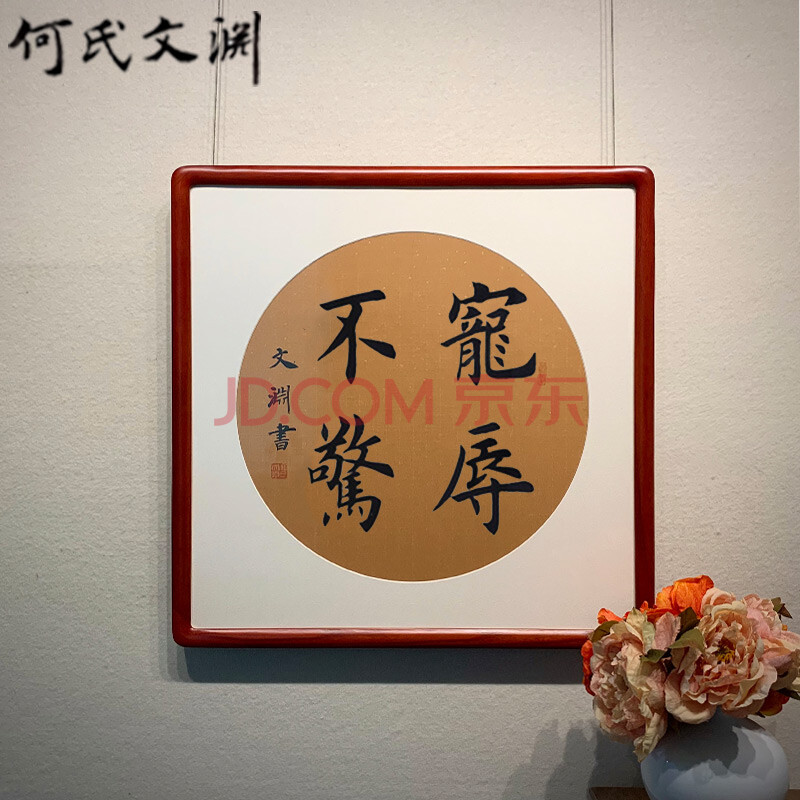 何氏文渊
寵辱
不驚
文淵書
JD.COM 京东